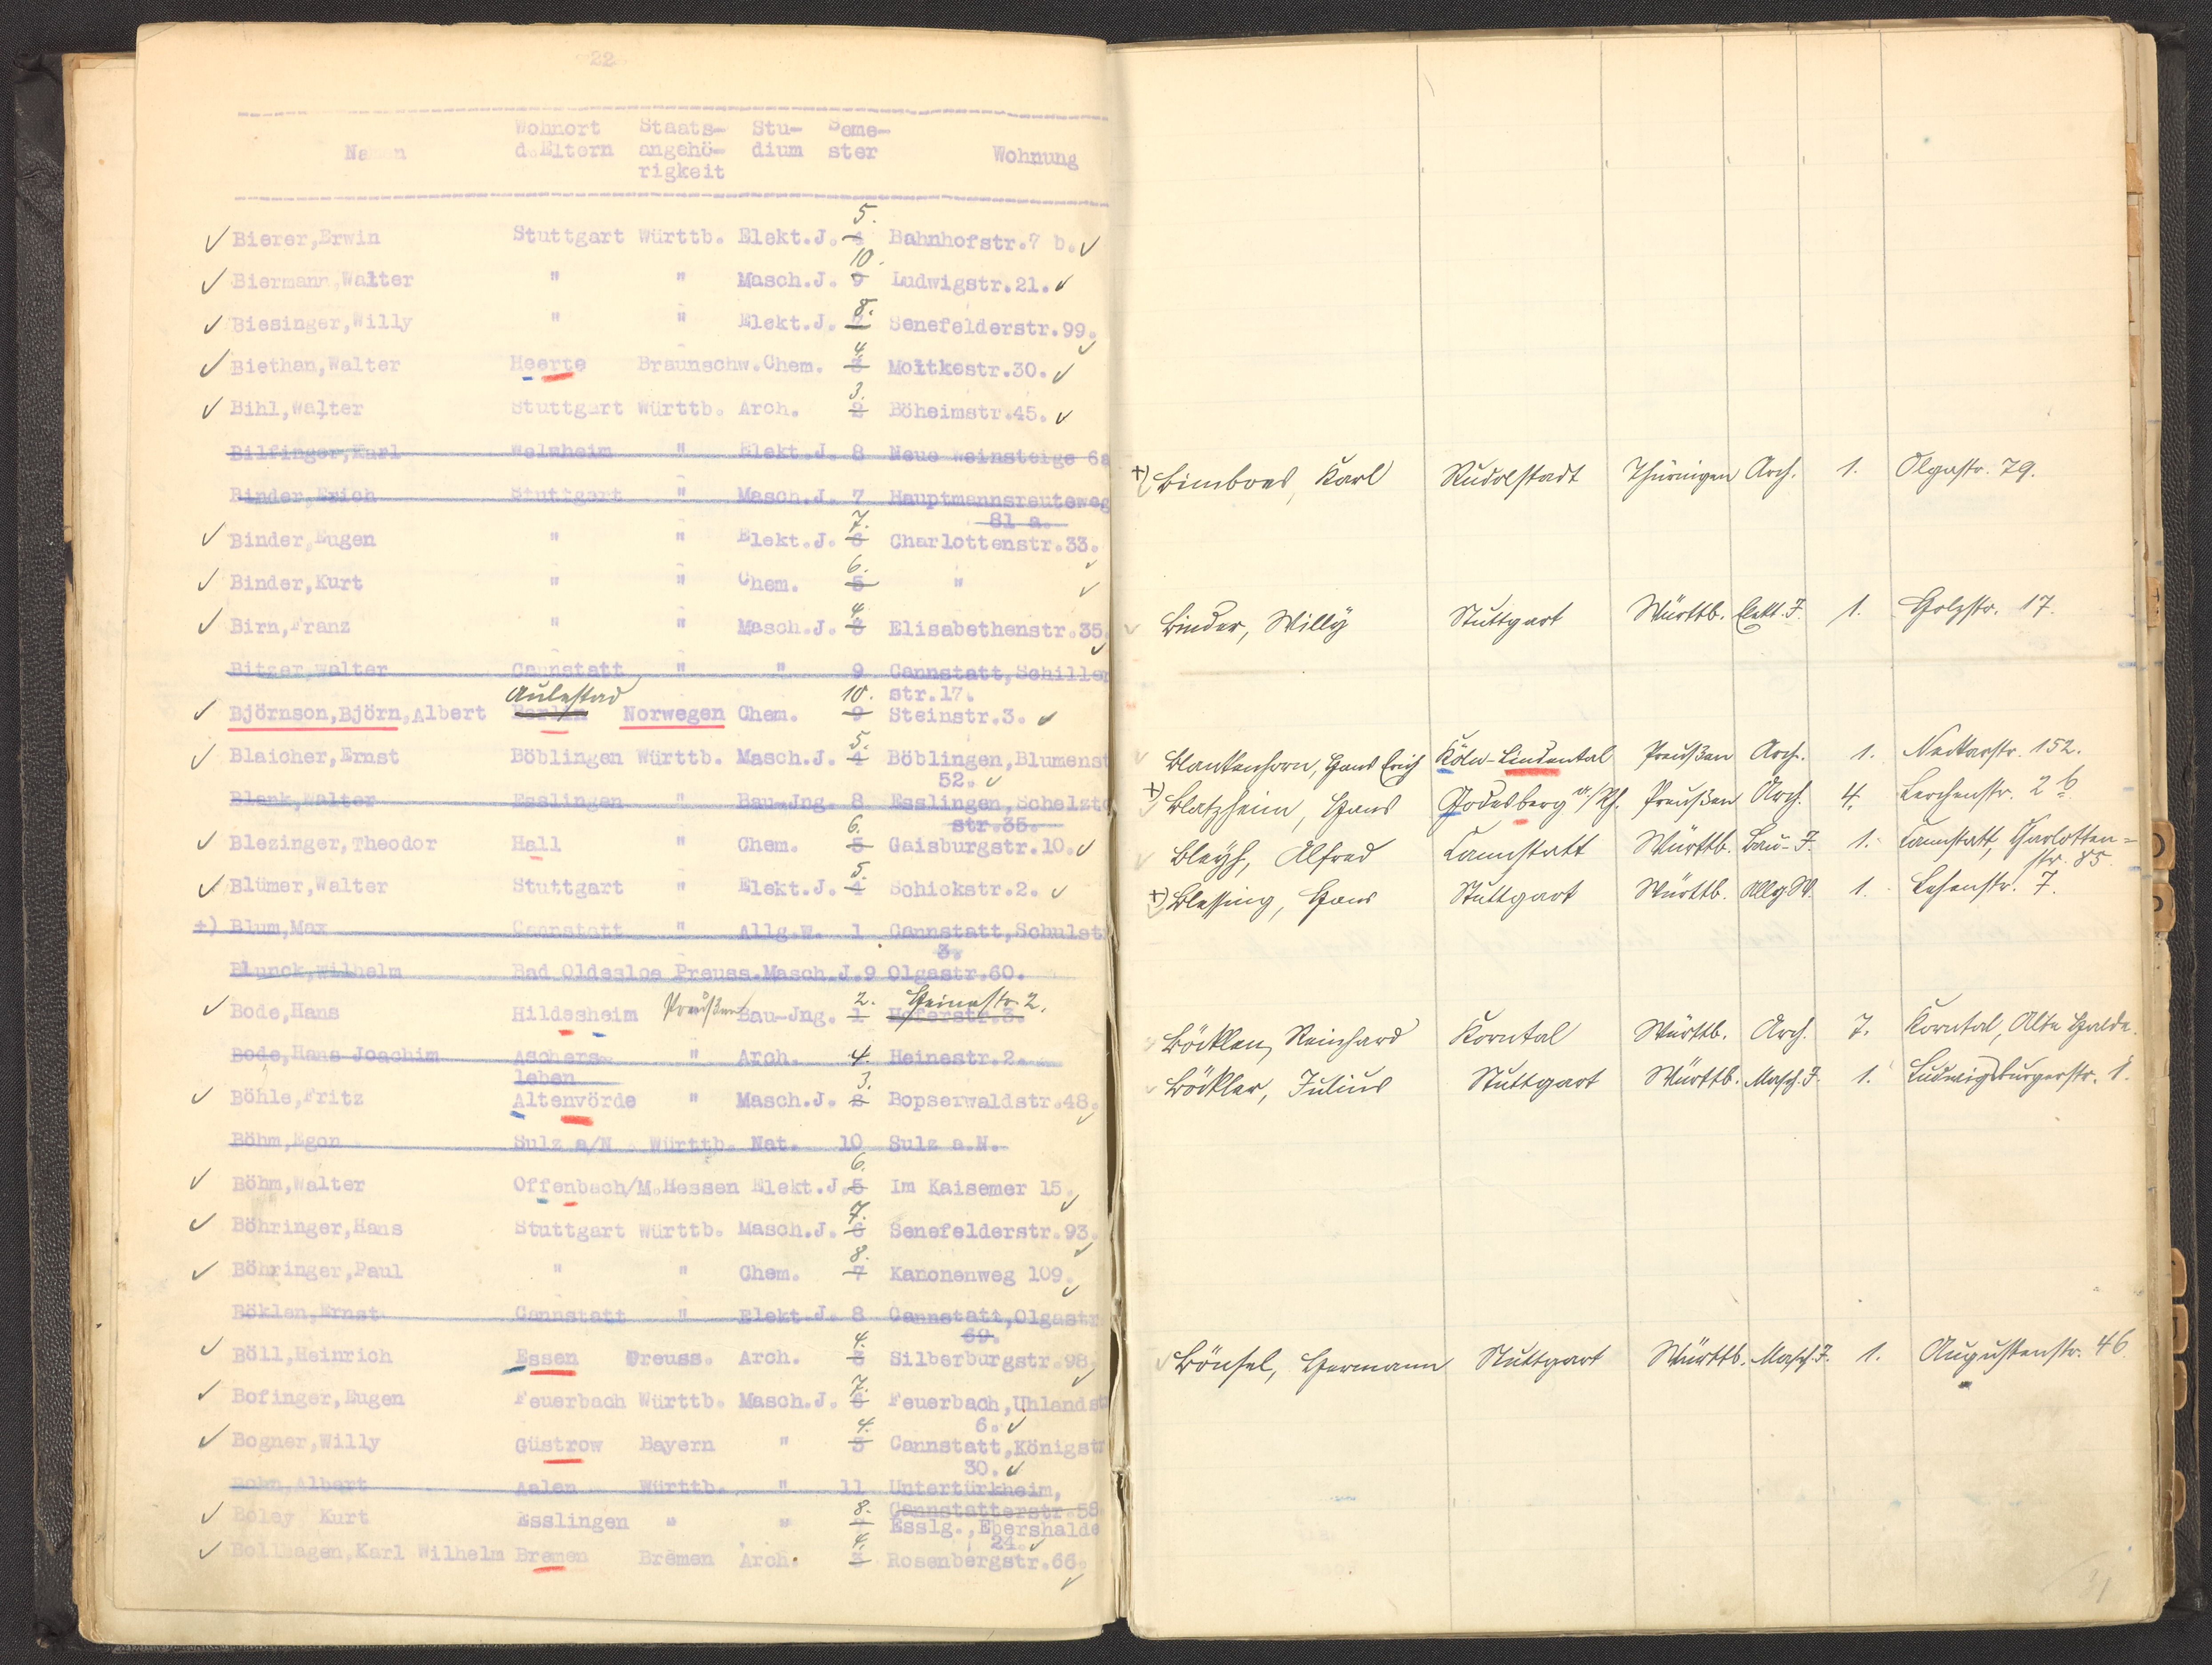 22
Wohnort Staats- Stu- Seme-
Namen d.Eltern angehö- dium ster Wohnung
rigkeit
5.
Bierer,Erwin Stuttgart Württb. Elekt.J. 4 Bahnhofstr.7 b.
10.
Biermann,Walter " " Masch.J. 9 Ludwigstr.21.
8.
Biesinger,Willy " " Elekt.J. Senefelderstr.99.
4.
Biethan,Walter Heerte Braunschw.Chem. 3 Moltkestr.30.
3.
Bihl,Walter Stuttgart Württb. Arch. 2 Böheimstr.45.
Bilfinger,Kurl Welzheim " Elekt.J. 8 Neue Weinsteige 6a
Binder,Erich Stuttgart " Masch.J. 7 Hauptmannsreuteweg
7. 81 a.
Binder,Eugen " " Elekt.J. 6 Charlottenstr.33.
6.
Binder,Kurt " " Chem. 5 "
4.
Birn,Franz " " Masch.J. 3 Elisabethenstr.35.
Bitzer,Walter Cannstatt " " 9 Cannstatt,Schiller
Aulestad 10. str.17.
Björnson,Björn,Albert Berlin Norwegen Chem. 9 Steinstr.3.
5.
Blaicher,Ernst Böblingen Württb. Masch.J. 4 Böblingen,Blumenst
52.
Blank,Walter Esslingen " Bau-Jng. 8 Esslingen,Schelzto
6. str.35.
Blezinger,Theodor Hall " Chem. 5 Gaisburgstr.10.
5.
Blümer,Walter Stuttgart " Elekt.J. 4 Schickstr.2.
+) Blum,Max Cannstatt " Allg.W. 1 Cannstatt,Schulst
3.
Blunck,Wilhelm Bad Oldesloe Preuss.Masch.J.9 Olgastr.60.
2. Heinestr. 2.
Bode,Hans Hildesheim Preußen Bau-Jng. 1 Hoferstr.3.
Bode,Hans Joachim Aschers- " Arch. 4. Heinestr.2.
leben 3.
Böhle,Fritz Altenvörde " Masch.J. 2 Bopserwaldstr.48.
Böhm,Egon Sulz a/N Württb. Nat. 10 Sulz a.N.
6.
Böhm,Walter Offenbach/M.Hessen Elekt.J.5 Im Kaisemer 15.
7.
Böhringer,Hans Stuttgart Württb. Masch.J. 6 Senefelderstr.93.
8.
Böhringer,Paul " " Chem. 7 Kanonenweg 109.
Böklen,Ernst Cannstatt " Elekt.J. 8 Cannstatt,Olgastr
4. 69.
Böll,Heinrich Essen Preuss. Arch. 3 Silberburgstr.98.
7.
Bofinger,Eugen Feuerbach Württb. Masch.J. 6 Feuerbach,Uhlandst
4. 6.
Bogner,Willy Güstrow Bayern " 3 Cannstatt,Königstr
30.
Bohn,Albert Aalen Württb. " 11 Untertürkheim,
8. Cannstatterstr.58
Boley Kurt Esslingen " " Esslg.,Ebershalde
4. 24.
Bollhagen,Karl Wilhelm Bremen Bremen Arch. 3 Rosenbergstr.66.
+) Bimboes, Karl Rudolstadt Thüringen Arch. 1. Olgastr. 79.
Binder, Willy Stuttgart Württb. Elekt. J. 1. Holzstr. 17.
Blankenhorn, Hans Erich Köln-Lindental Preußen Arch. 1. Neckarstr. 152.
+) Blatzheim, Hans Godesberg a/Rh. Preußen Arch. 4. Lerchenstr. 2 b
Bleyh, Alfred Cannstatt Württb. Bau-J. 1. Cannstatt, Charlotten=
str. 85.
+) Blessing, Hans Stuttgart Württb. Allg. W. 1. Lehenstr. 7.
Böcklen, Reinhard Korntal Württb. Arch. 7. Korntal, Alte Halde.
Böckler, Julius Stuttgart Württb. Masch. J. 1. Ludwigsburgerstr. 1.
Bönsel, Hermann Stuttgart Württb. Masch. J. 1. Augustenstr. 46.